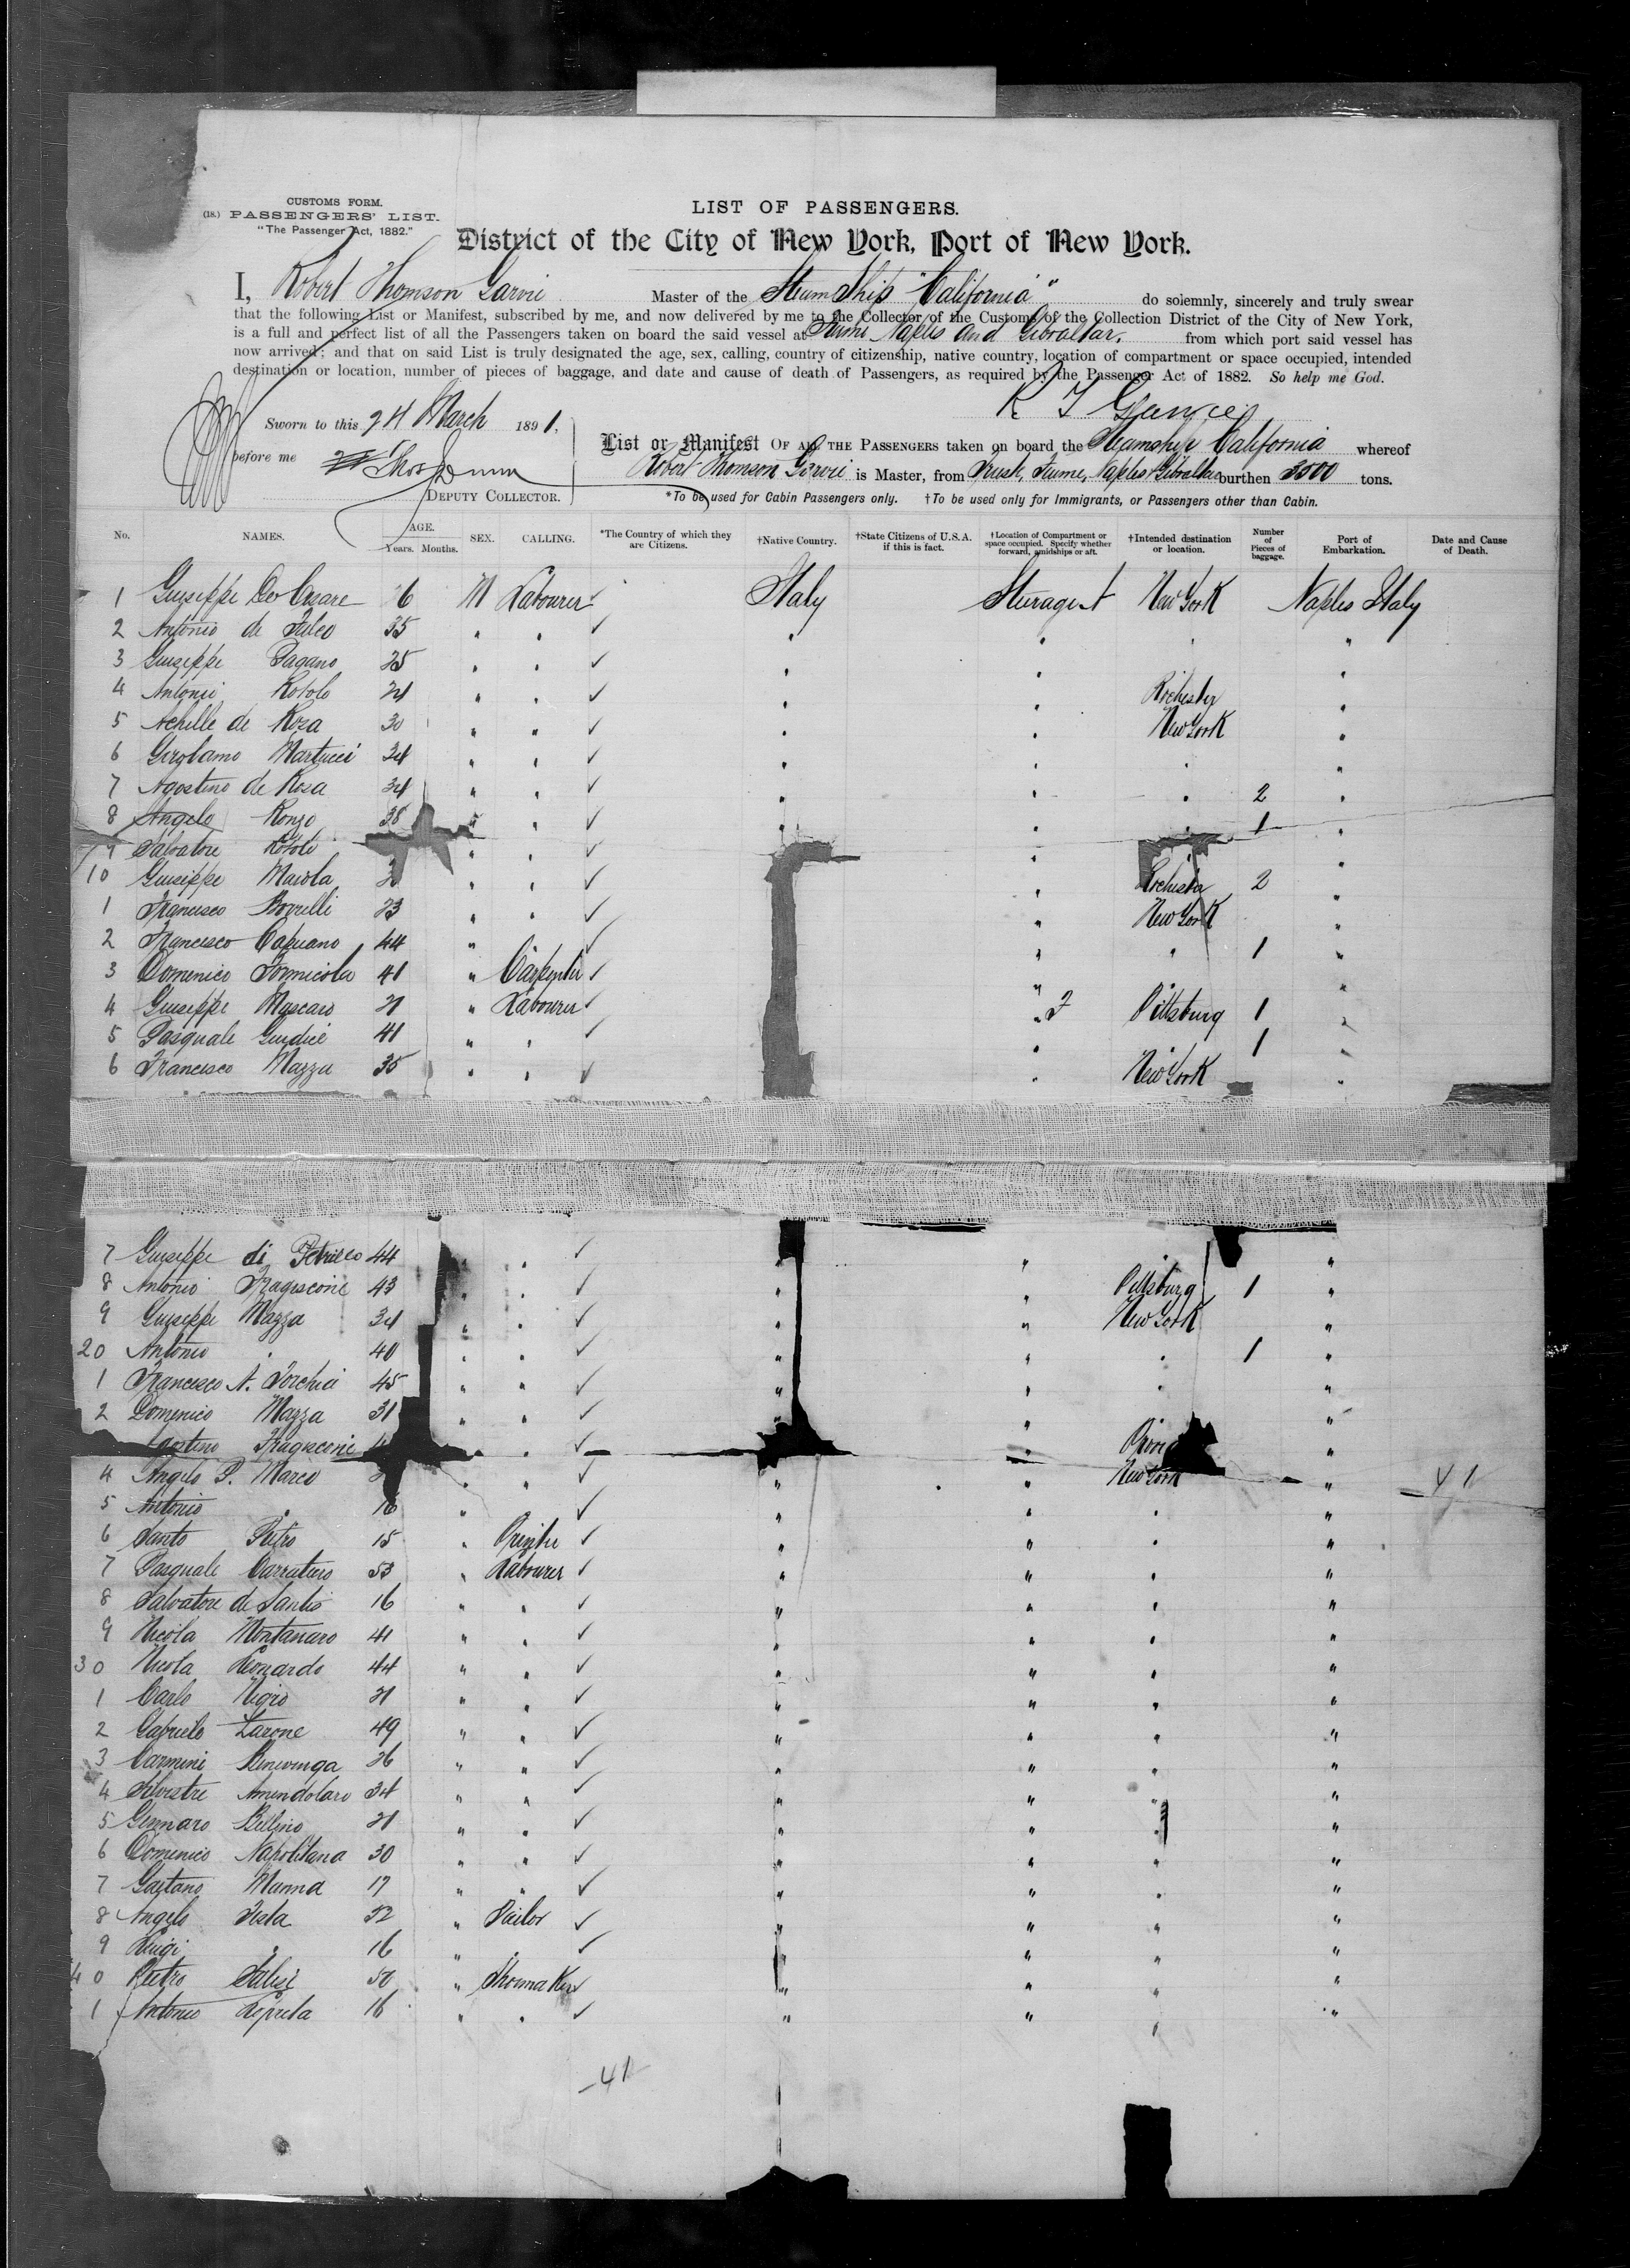 CUSTOMS FORM.
(18.) PASSENGERS' LIST.
"The Passenger Act, 1882."
LIST OF PASSENGERS.
District of the City of New York, Port of New York.
I, Robert Thomson Garvie Master of the Steam Ship "California" do solemnly, sincerely and truly swear
that the following List or Manifest, subscribed by me, and now delivered by me to the Collector of the Customs of the Collection District of the City of New York,
is a full and perfect list of all the Passengers taken on board the said vessel at Fiume Naples and Gibraltar. from which port said vessel has
now arrived; and that on said List is truly designated the age, sex, calling, country of citizenship, native country, location of compartment or space occupied, intended
destination or location, number of pieces of baggage, and date and cause of death of Passengers, as required by the Passenger Act of 1882. So help me God.
R T Garvie
Sworn to this 24 March 1891,
before me Thos Dunn
DEPUTY COLLECTOR.
List or Manifest OF ALL THE PASSENGERS taken on board the Steamship California whereof
Robert Thomson Garvie is Master, from Triest, Fiume, Naples Gibraltar burthen 3500 tons.
*To be used for Cabin Passengers only. †To be used only for Immigrants, or Passengers other than Cabin.
No. NAMES. AGE. Years. Months. SEX. CALLING. *The Country of which they are Citizens. †Native Country. †State Citizens of U.S.A. if this is fact. †Location of Compartment or space occupied. Specify whether forward, amidships or aft. †Intended destination or location. Number of Pieces of baggage. Port of Embarkation. Date and Cause of Death.
1 Giuseppe 6 M Labourer ✓ Italy New York Naples Italy
2 Antonio de 35 " " ✓ " " " "
3 Giuseppe Pagano 25 " " ✓ " " "
4 Antonio Rotolo 21 " " ✓ " " Rochester "
5 Achille de Rosa 30 " " ✓ " " New York "
6 Girolamo Martucci 34 " " ✓ " " " "
7 Agostino de Rosa 34 " " ✓ " " " 2 "
8 Angelo Ronzo 38 " " ✓ " " " 1 "
9 Salvatore Rotolo " " ✓ " " "
10 Giuseppe Maiola " " ✓ " Rochester 2 "
1 Francesco Borrelli 23 " " ✓ " New York "
2 Francesco Capuano 44 " ✓ " " 1 "
3 Domenico Formicola 41 " Carpenter ✓ " "
4 Giuseppe Mascaro 21 " Labourer ✓ " Pittsburg 1 "
5 Pasquale Giudice 41 " " ✓ " 1 "
6 Francesco Mazza 35 " " ✓ " New York "
7 Giuseppe di 44 " ✓ " "
8 Antonio 43 " " ✓ " " Pittsburg 1 "
9 Giuseppe Mazza 34 " " ✓ " " New York "
20 Antonio " 40 " " ✓ " " " 1 "
1 Francesco A. Torchia 45 " " ✓ " " " "
2 Domenico Mazza 31 " " ✓ " " "
" " ✓ " "
4 Angelo P. Marco " " ✓ " " New York " 41
5 Antonio " 16 " ✓ " " " "
6 Santo Pietro 15 " ✓ " " " "
7 Pasquale Carraturo 53 " Labourer ✓ " " " "
8 Salvatore de Santis 16 " " ✓ " " " "
9 Nicola Montanaro 41 " " ✓ " " " "
30 Nicola Leonardo 44 " " ✓ " " " "
1 Carlo Nigro 21 " " ✓ " " " "
2 Gabriele 49 " " ✓ " " " "
3 Carmine 26 " " ✓ " " " "
4 Silvestre Amendolaro 34 " " ✓ " " " "
5 Gennaro 21 " " ✓ " " " "
6 Domenico Napolitana 30 " " ✓ " " " "
7 Gaetano Manna 17 " " ✓ " " " "
8 Angelo Testa 52 " Tailor ✓ " " " "
9 Luigi " 16 " " ✓ " " " "
40 Pietro 50 " Shoemaker ✓ " " " "
1 Antonio 16 " " ✓ " " " "
41